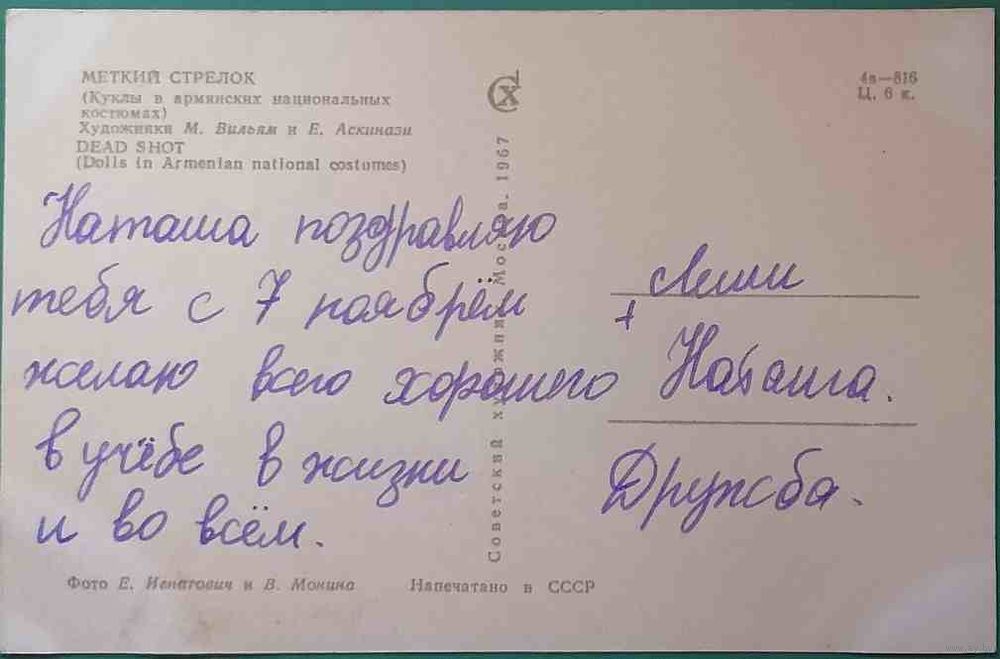 МЕТКИЙ СТРЕЛОК
(Куклы в армянских национальных
костюмах)
Художники М. Вильям и Е. Аскинази
DEAD SHOT
(Dolls in Armenian national costumes)
СХ
4в—816
Ц. 6 к.
Наташа поздравляю
тебя с 7 ноябрём
желаю всего хорошего
в учёбе в жизни
и во всём.
Советский художник. Москва. 1967
+
Наташа.
Дружба.
Фото Е. Игнатович и В. Монина
Напечатано в СССР